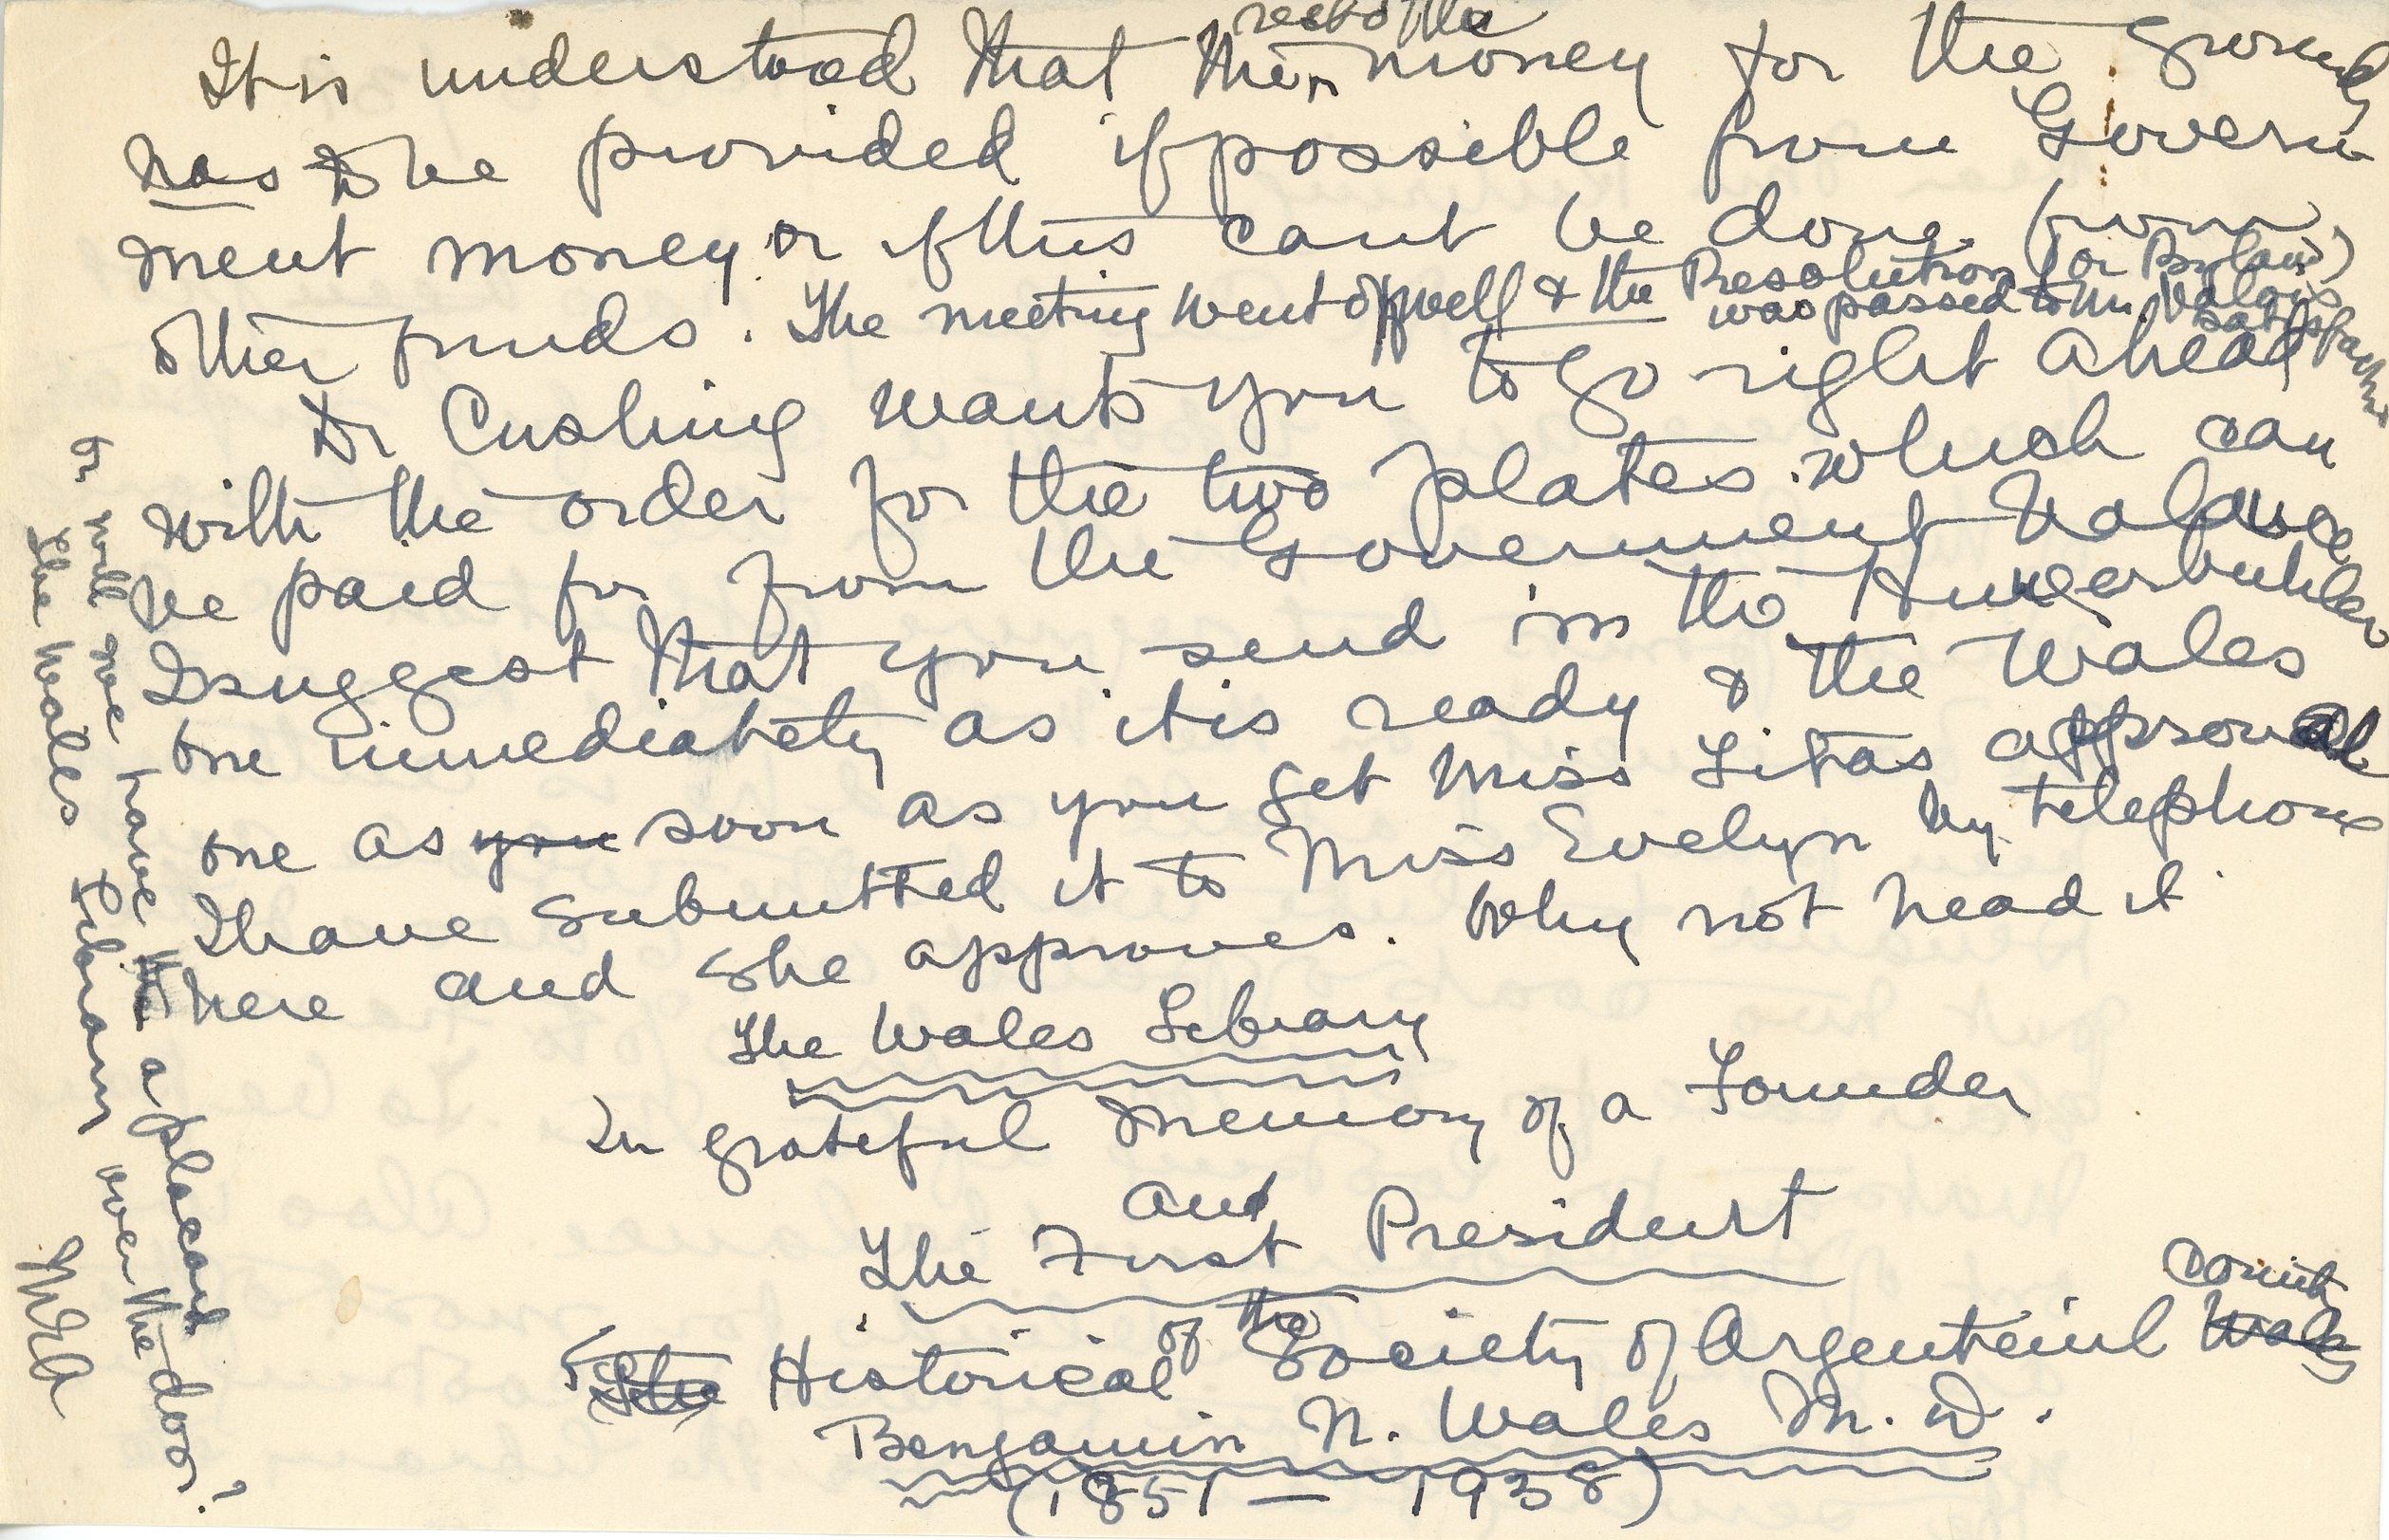 It is understood that the rest of the money for the grounds
has to be provided if possible from Govern
ment money or if this cant be done from
other funds. The meeting went off well & the Resolution (or Bylaw)
was passed to Mr. Walais satisfaction
Dr Cushing wants you to go right ahead
with the order for the two plates which can
be paid for from the Government balance
I suggest that you send in the Hungerbuhler
one immediately as it is ready & the Wales
one as you soon as you get Miss Litas approval
I have submitted it to Miss Evelyn by telephone
here and she approves. Why not head it
The Wales Library
In grateful memory of a Founder
and
The First President
of the
The Historical Society of Argenteuil County Wales
Benjamin N. Wales M. D.
(1851 — 1938)
or will we have the a placard
The Wales Library over the door?